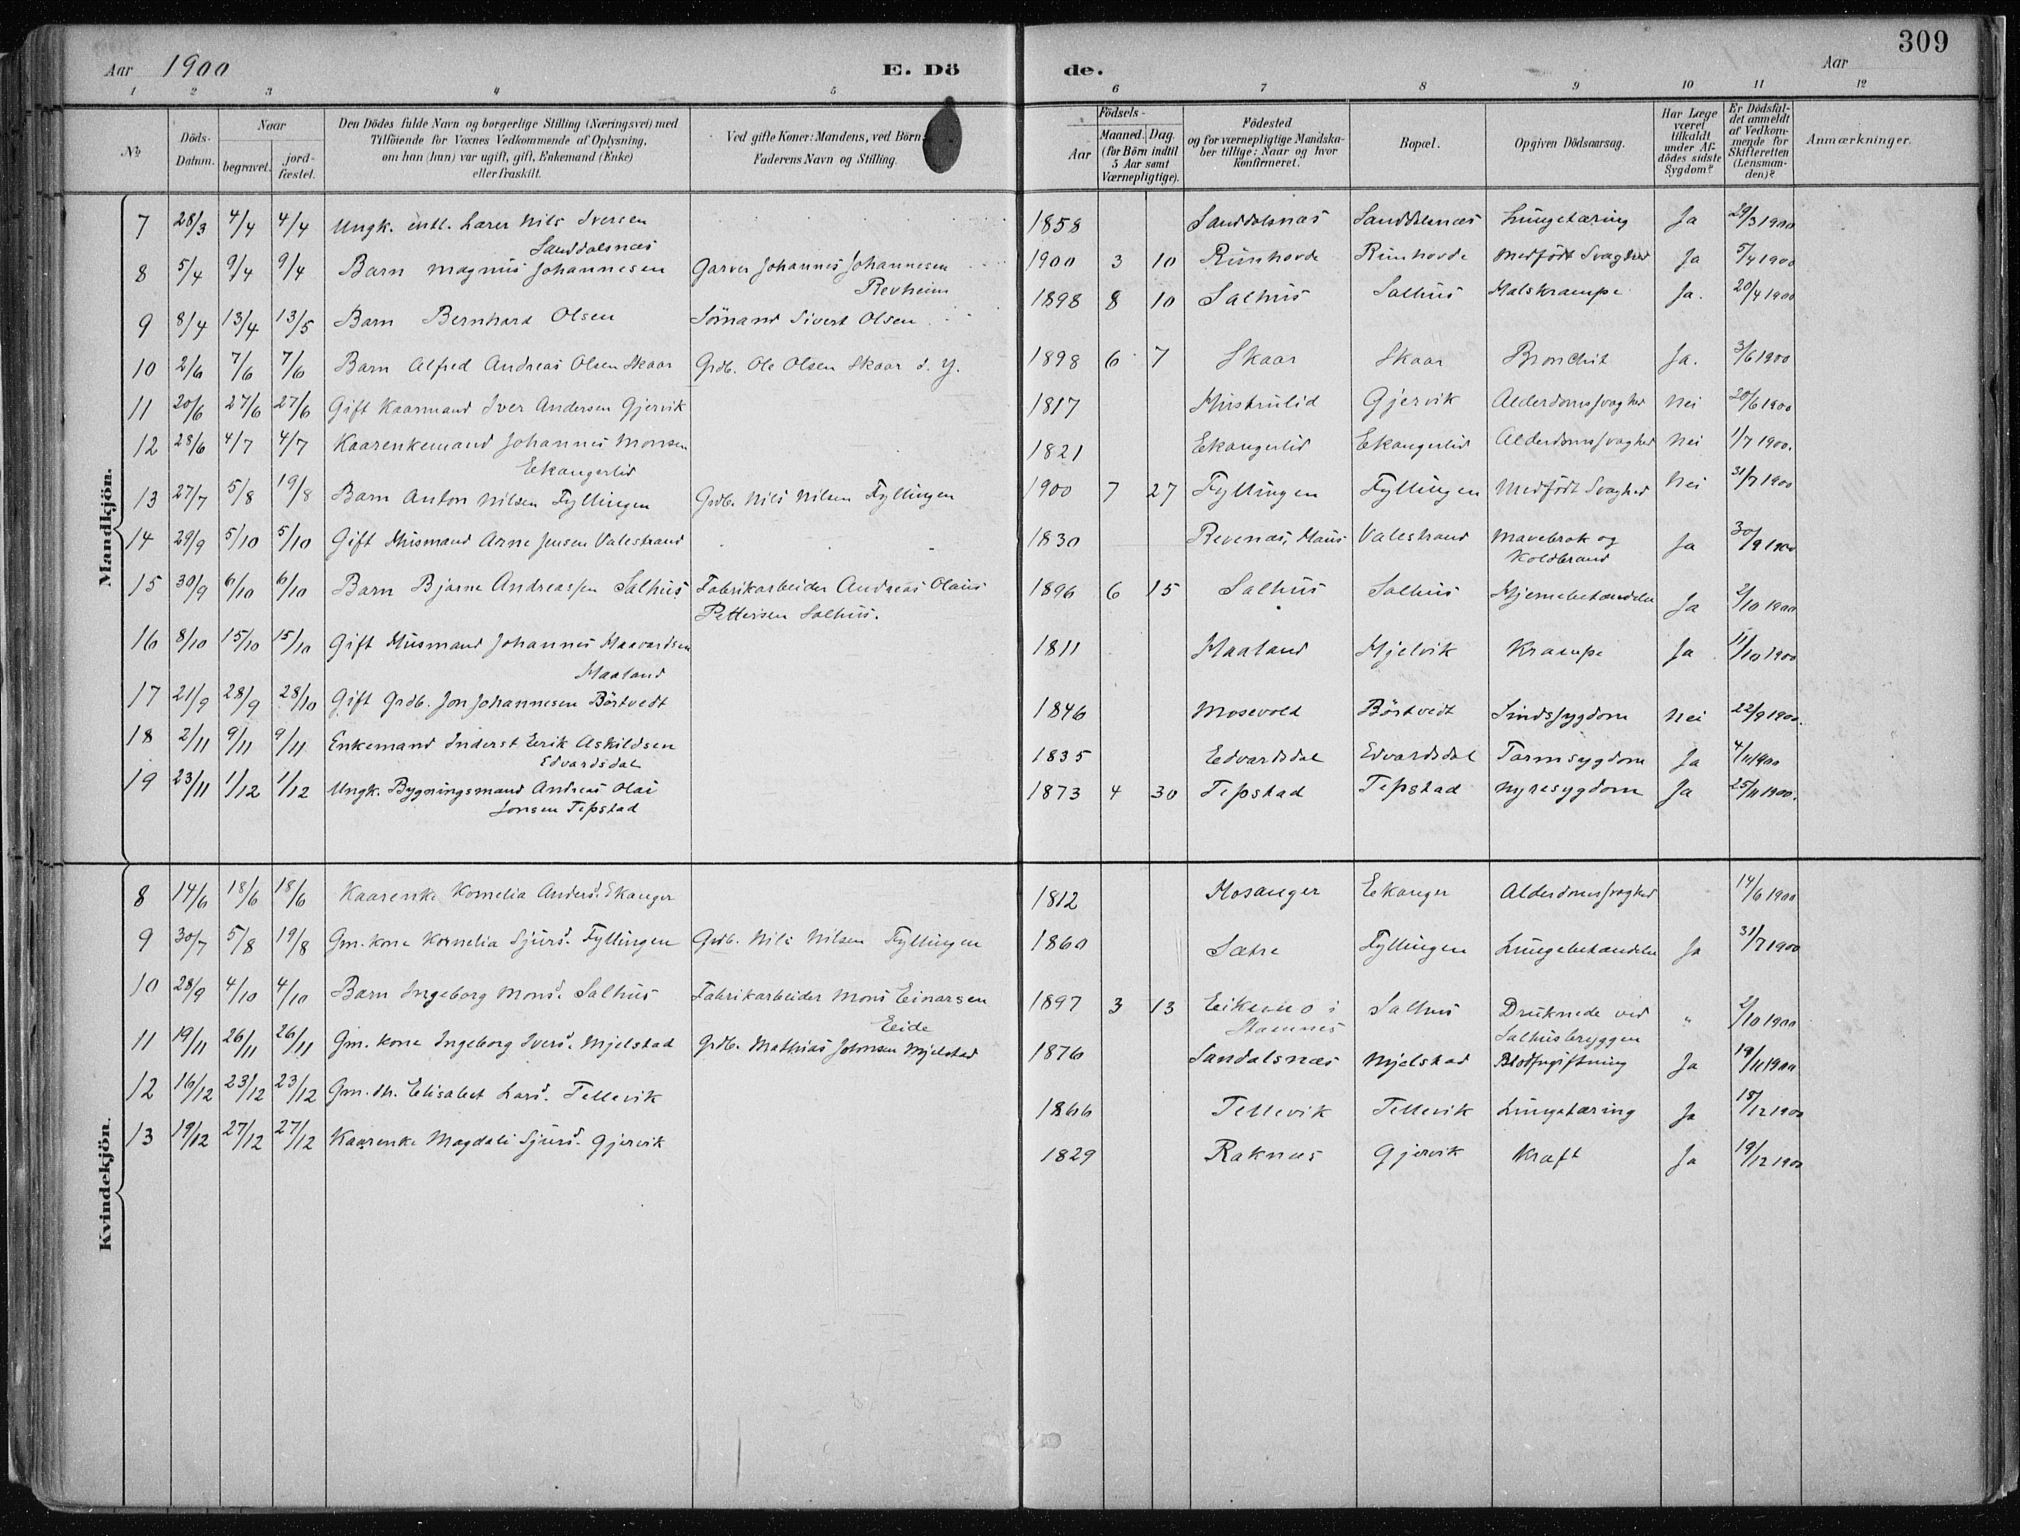 309
Aar 1900 E. Döde. Aar
1 2 3 4 5 6 7 8 9 10 11 12
No
Döds-Datum.
Naar
begravet. jordfæstet.
Den Dödes fulde Navn og borgerlige Stilling (Næringsvei) med
Tilföiende for Voxnes Vedkommende af Oplysning,
om han (hun) var ugift, gift, Enkemand (Enke)
eller fraskilt.
Ved gifte Koner: Mandens, ved Börn:
Faderens Navn og Stilling.
Födsels-
Aar Maaned. Dag.
(for Börn indtil
5 Aar samt
Værnepligtige).
Födested
og for værnepligtige Mandska-
ber tillige: Naar og hvor
Konfirmeret.
Bopæl.
Opgiven Dödsaarsag.
Har Læge
været
tilkaldt
under Af-
dödes sidste
Sygdom?
Er Dödsfal-
det anmeldt
af Vedkom-
mende for
Skifteretten
(Lensman-
den)?
Anmærkninger.
Mandkjön.
7 28/3 4/4 4/4 Ungk. entl. Lærer Nils Iversen 1858 Sanddalsnæs Sanddalsnæs Lungetæring Ja 29/3 1900
Sanddalsnæs
8 5/4 9/4 9/4 Barn Magnus Johannesen Garver Johannes Johannesen 1900 3 10 Rimhovde Rimhovde Medfödt Svaghed Ja 5/4 1900
Revheim
9 8/4 13/4 13/5 Barn Bernhard Olsen Sömand Sivert Olsen 1898 8 10 Salhus Salhus Halskrampe Ja. 20/4 1900
10 2/6 7/6 7/6 Barn Alfred Andreas Olsen Skaar Grdb. Ole Olsen Skaar d. y. 1898 6 7 Skaar Skaar Bronchit Ja. 3/6 1900
11 20/6 27/6 27/6 Gift Kaarmand Iver Andersen Gjervik 1817 Hustrulid Gjervik Alderdomssvaghed Nei 20/6 1900
12 28/6 4/7 4/7 Kaarenkemand Johannes Monsen 1821 Ekangerlid Ekangerlid Alderdomssvaghed Nei 1/7 1900.
Ekangerlid
13 27/7 5/8 19/8 Barn Anton Nilsen Fyllingen Grdb. Nils Nilsen Fyllingen 1900 7 27 Fyllingen Fyllingen Medfödt Svaghed Nei 31/7 1900
14 29/9 5/10 5/10 Gift Husmand Arne Jensen Valestrand 1830 Revenæs, Haus Valestrand Mavebrok og Ja 30/9 1900
Koldbrand
15 30/9 6/10 6/10 Barn Bjarne Andreassen Salhus Fabrikarbeider Andreas Olaus 1896 6 15 Salhus Salhus Hjernebetændelse Ja 2/10 1900
Pettersen Salhus.
16 8/10 15/10 15/10 Gift Husmand Johannes Haavardsen 1811 Haaland Hjelvik Krampe Ja 11/10 1900
Haaland
17 21/9 28/9 28/10 Gift Grdb. Jon Johannesen Börtvedt 1846 Mosevold Börtvedt Sindssygdom Nei 22/9 1900.
18 2/11 9/11 9/11 Enkemand Inderst Eerik Askildsen 1835 Edvardsdal Edvardsdal Tarmsygdom Ja 4/11 1900
Edvardsdal
19 23/11 1/12 1/12 Ungk. Bygningsmand Andreas Olai 1873 4 30 Tepstad Tepstad Nyresygdom Ja 25/11 1900.
Jonsen Tepstad
Kvindekjön.
8 14/6 18/6 18/6 Kaarenke Kornelia Andersd. Ekanger 1812 Hosanger Eekanger Alderdomssvaghed 14/6 1900
9 30/7 5/8 19/8 Gm. kone Kornelia Sjursd. Fyllingen Grdb. Nils Nilsen Fyllingen 1860 Sætre Fyllingen Lungebetændelse Ja 31/7 1900
10 28/9 4/10 4/10 Barn Ingeborg Monsd. Salhus Fabrikarbeider Mons Einarsen 1897 3 13 Eikemo i Salhus Druknede ved " 2/10 1900
Eide Stamnes Salhusbryggen
11 19/11 26/11 26/11 Gm. kone Ingeborg Iversd. Mjelstad Grdb. Mathias Johnsen Mjelstad 1876 Sandalsnæs Mjelstad Blodforgiftning Ja 19/11 1900
12 16/12 23/12 23/12 Gm. dtr. Elisabet Larsd. Tellevik 1866 Tellevik Tellevik Lungetæring Ja 18/12 1900
13 19/12 27/12 27/12 Kaarenke Magdali Sjursd. Gjervik 1829 Raknes Gjervik Kræft Ja 19/12 1900